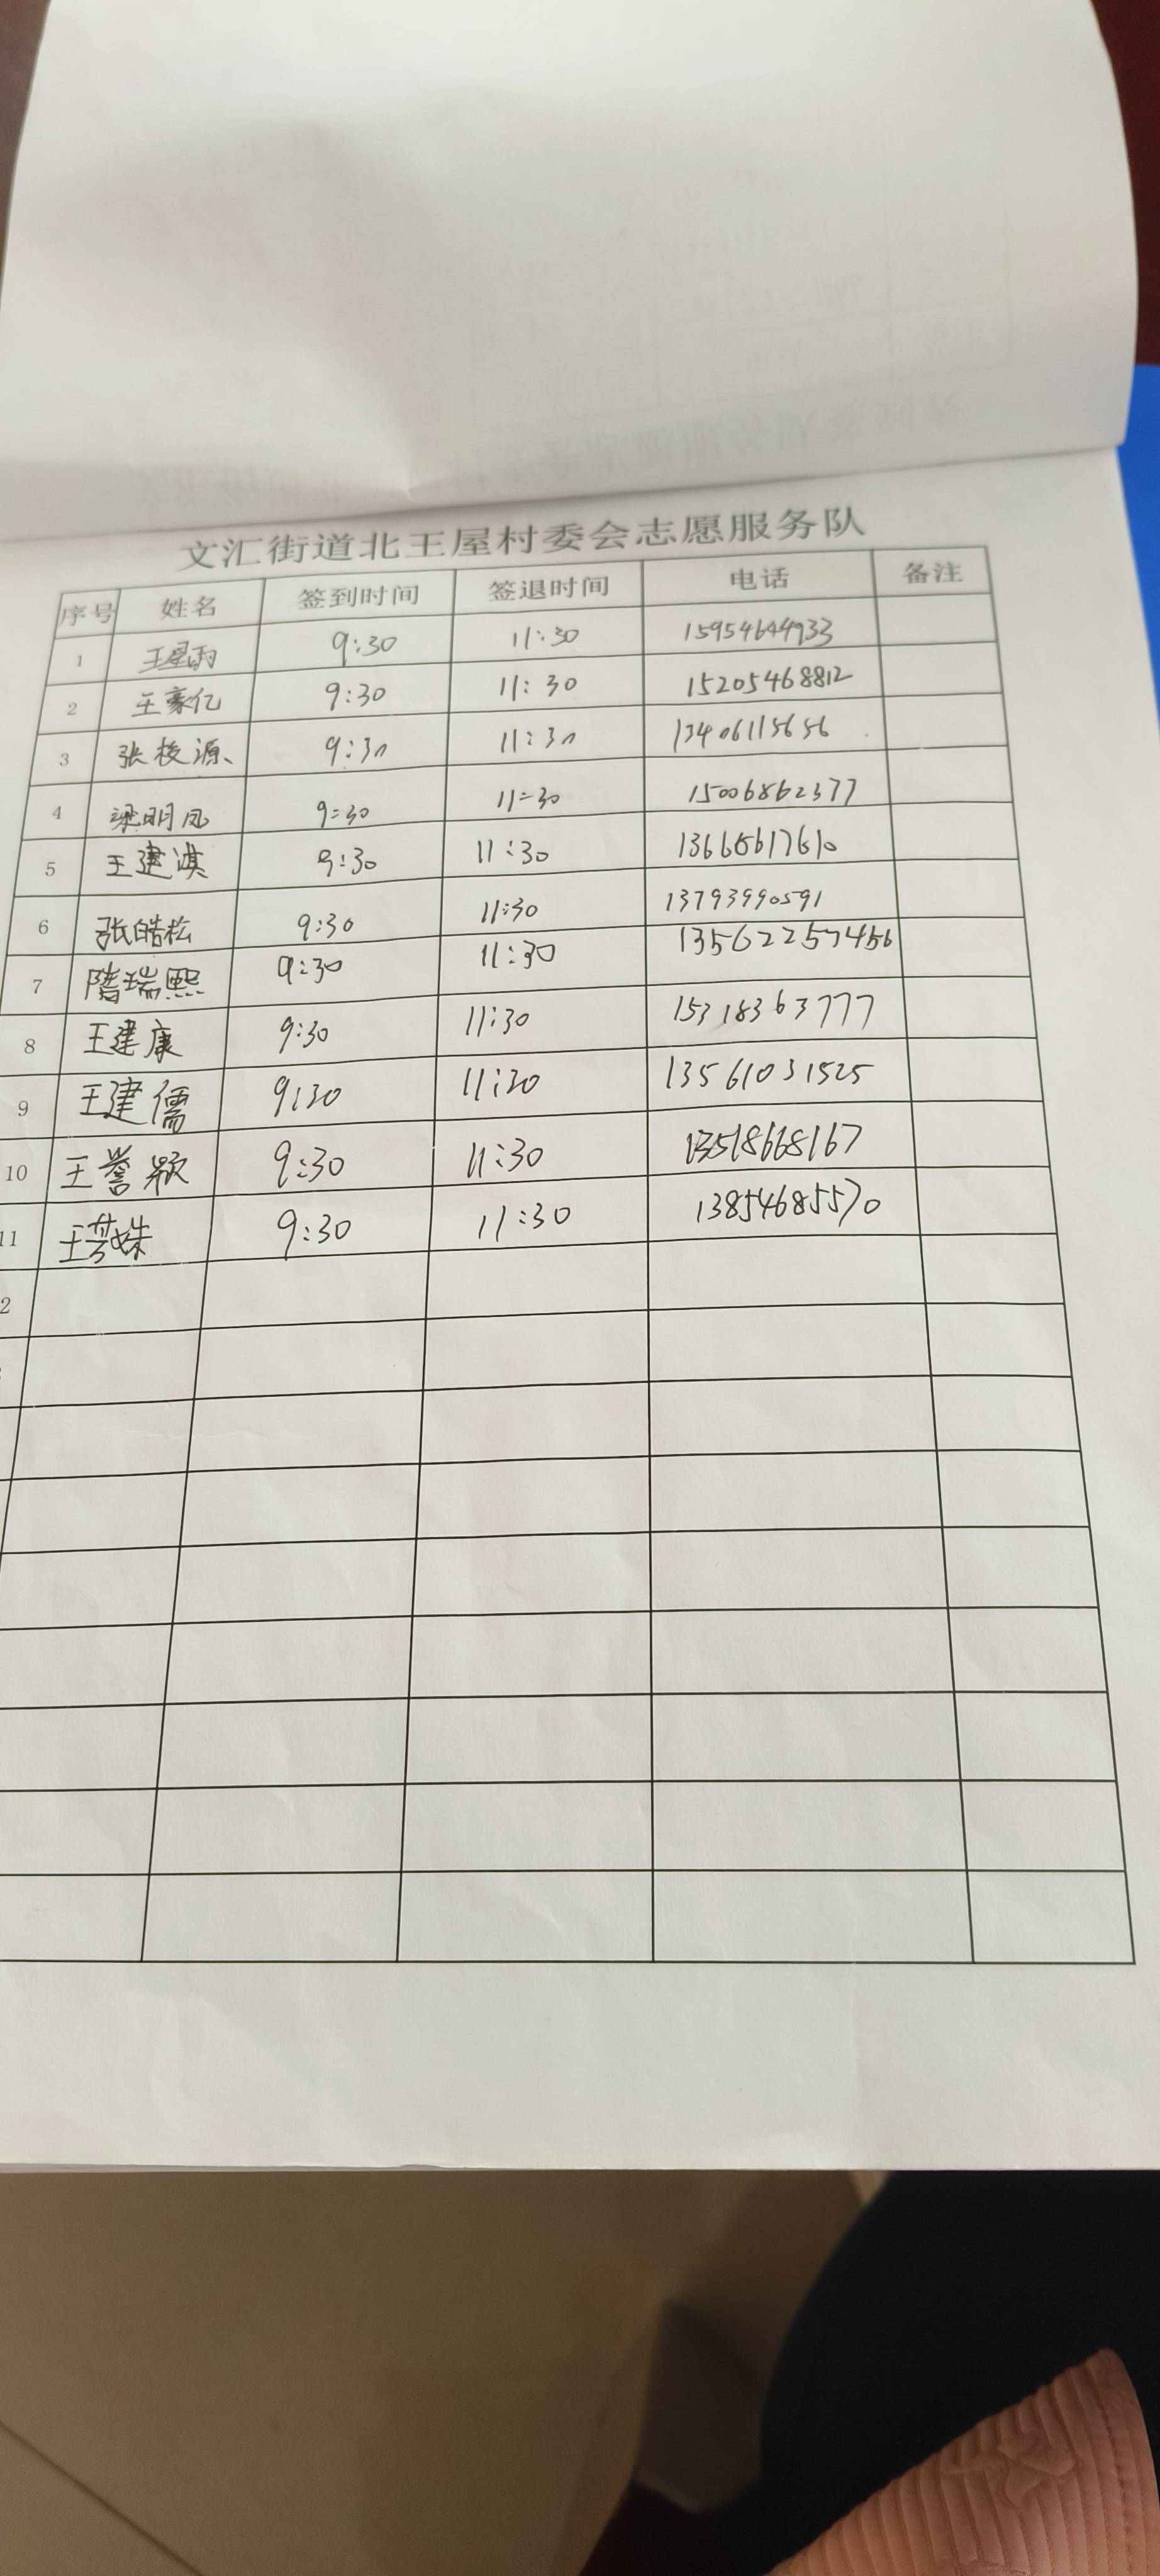 文汇街道北王屋村委会志愿服务队
序号 姓名 签到时间 签退时间 电话 备注
1 王星雨 9:30 11:30 15954644933
2 王豪亿 9:30 11:30 15205468812
3 张梭源 9:30 11:30 13406115656
4 梁明凤 9:30 11:30 15006862377
5 王建淇 9:30 11:30
6 张皓松 9:30 11:30 13793990591
7 隋瑞熙 9:30 11:30 135622257456
8 王建康 9:30 11:30 15318363777
9 王建儒 9:30 11:30 13561031525
10 王誉颖 9:30 11:30 13518668167
11 王芸姝 9:30 11:30 13854685570
2